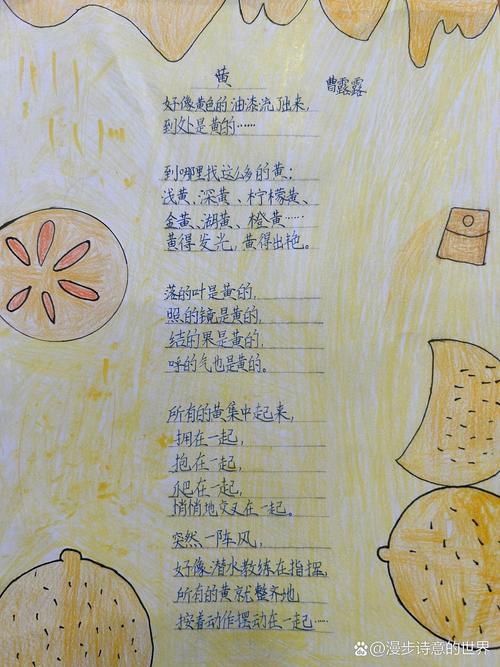 黄
曹露露
好像黄色的油漆流了出来,
到处是黄的……
到哪里找这么多的黄:
浅黄、深黄、柠檬黄、
金黄、湖黄、橙黄……
黄得发光,黄得出艳。
落的叶是黄的,
照的镜是黄的,
结的果是黄的,
呼的气也是黄的。
所有的黄集中起来,
拥在一起,
抱在一起,
爬在一起,
悄悄地交叉在一起。
突然一阵风,
好像潜水教练在指挥,
所有的黄就整齐地
按着动作摆动在一起……
@漫步诗意的世界